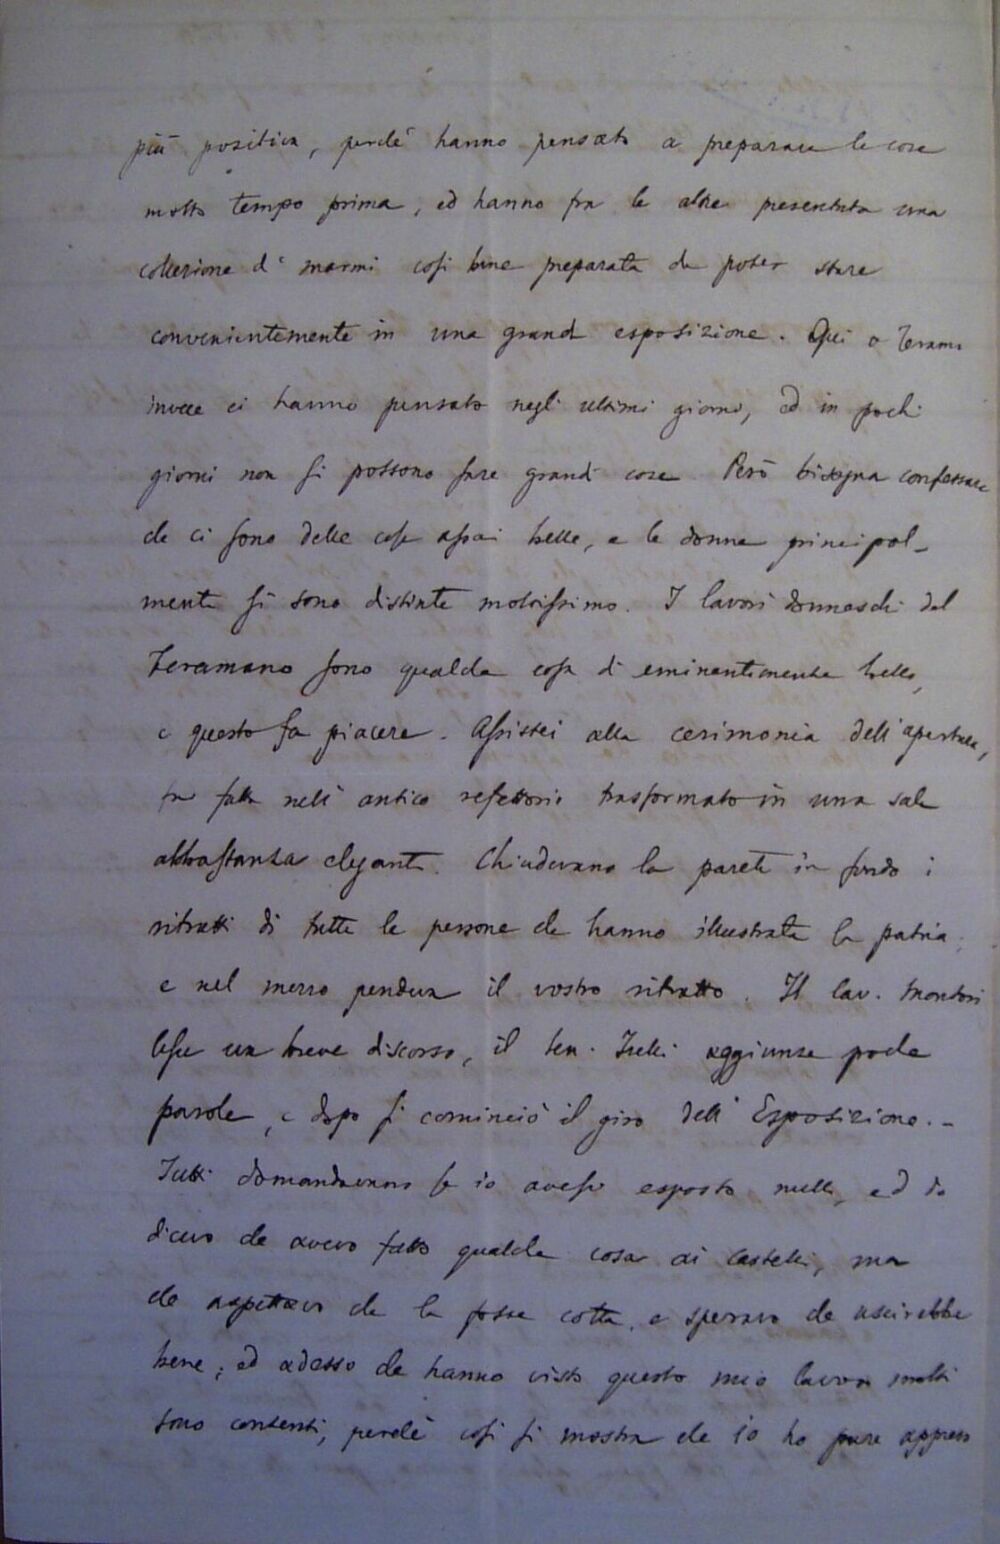 più positiva, perchè hanno pensato a preparare le cose
molto tempo prima, ed hanno fra le altre presentata una
collezione di marmi così bene preparata da poter stare
convenientemente in una grande esposizione. Qui a Teramo
invece ci hanno pensato negli ultimi giorni, ed in pochi
giorni non si possono fare grandi cose. Però bisogna confessare
che ci sono delle cose assai belle, e le donne principal-
mente si sono distinte moltissimo. I lavori donneschi del
Teramano sono qualche cosa di eminentemente bello,
e questo fa piacere. Assistei alla cerimonia dell'apertura,
fu fatta nell'antico refettorio trasformato in una sala
abbastanza elegante. Chiudevano la parete in fondo i
ritratti di tutte le persone che hanno illustrata la patria,
e nel mezzo pendeva il vostro ritratto. Il Cav. Montori
lesse un breve discorso, il aggiunse poche
parole, e dopo si cominciò il giro dell'Esposizione.-
Tutti domandavano se io avessi esposto nulla, ed io
dicevo che avevo fatto qualche cosa ai Castelli, ma
che aspettavo che la fosse cotta, e speravo che uscirebbe
bene; ed adesso che hanno visto questo mio lavoro molti
sono contenti, perchè così si mostra che io ho pure appreso